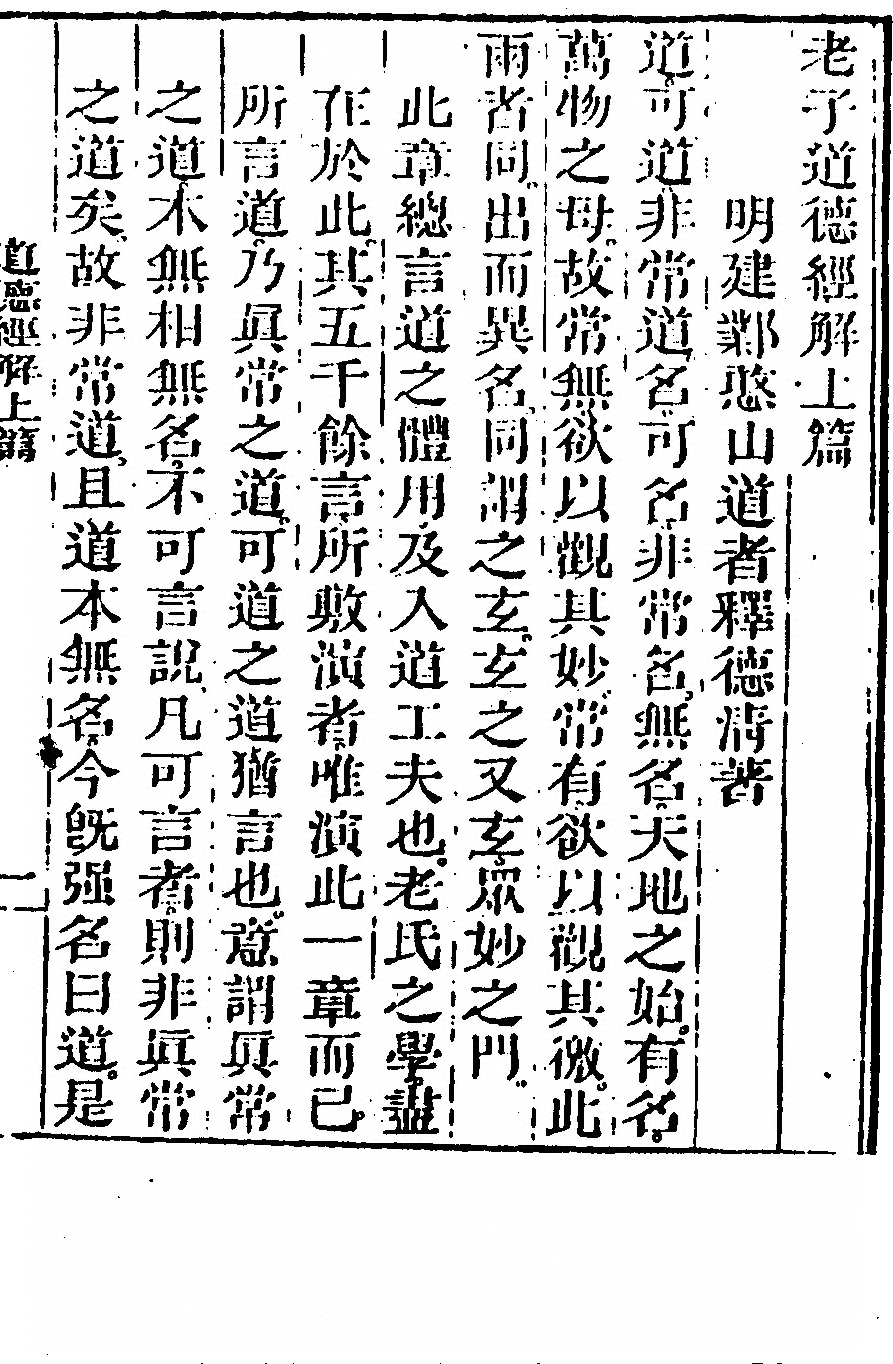 老子道德經解上篇
明建鄴憨山道者釋德清著
道可道。非常道。名可名。非常名。無名。天地之始。有名。
萬物之母。故常無欲以觀其妙。常有欲以觀其徼。此
兩者同。出而異名。同謂之玄。玄之又玄。眾妙之門。
此章總言道之體用。及入道工夫也。老氏之學。盡
在於此。其五千餘言。所敷演者。唯演此一章而已。
所言道。乃眞常之道。可道之道。猶言也。意謂眞常
之道。本無相無名。不可言說。凡可言者。則非眞常
之道矣。故非常道。且道本無名。今旣强名曰道。是
道德經解上篇
一